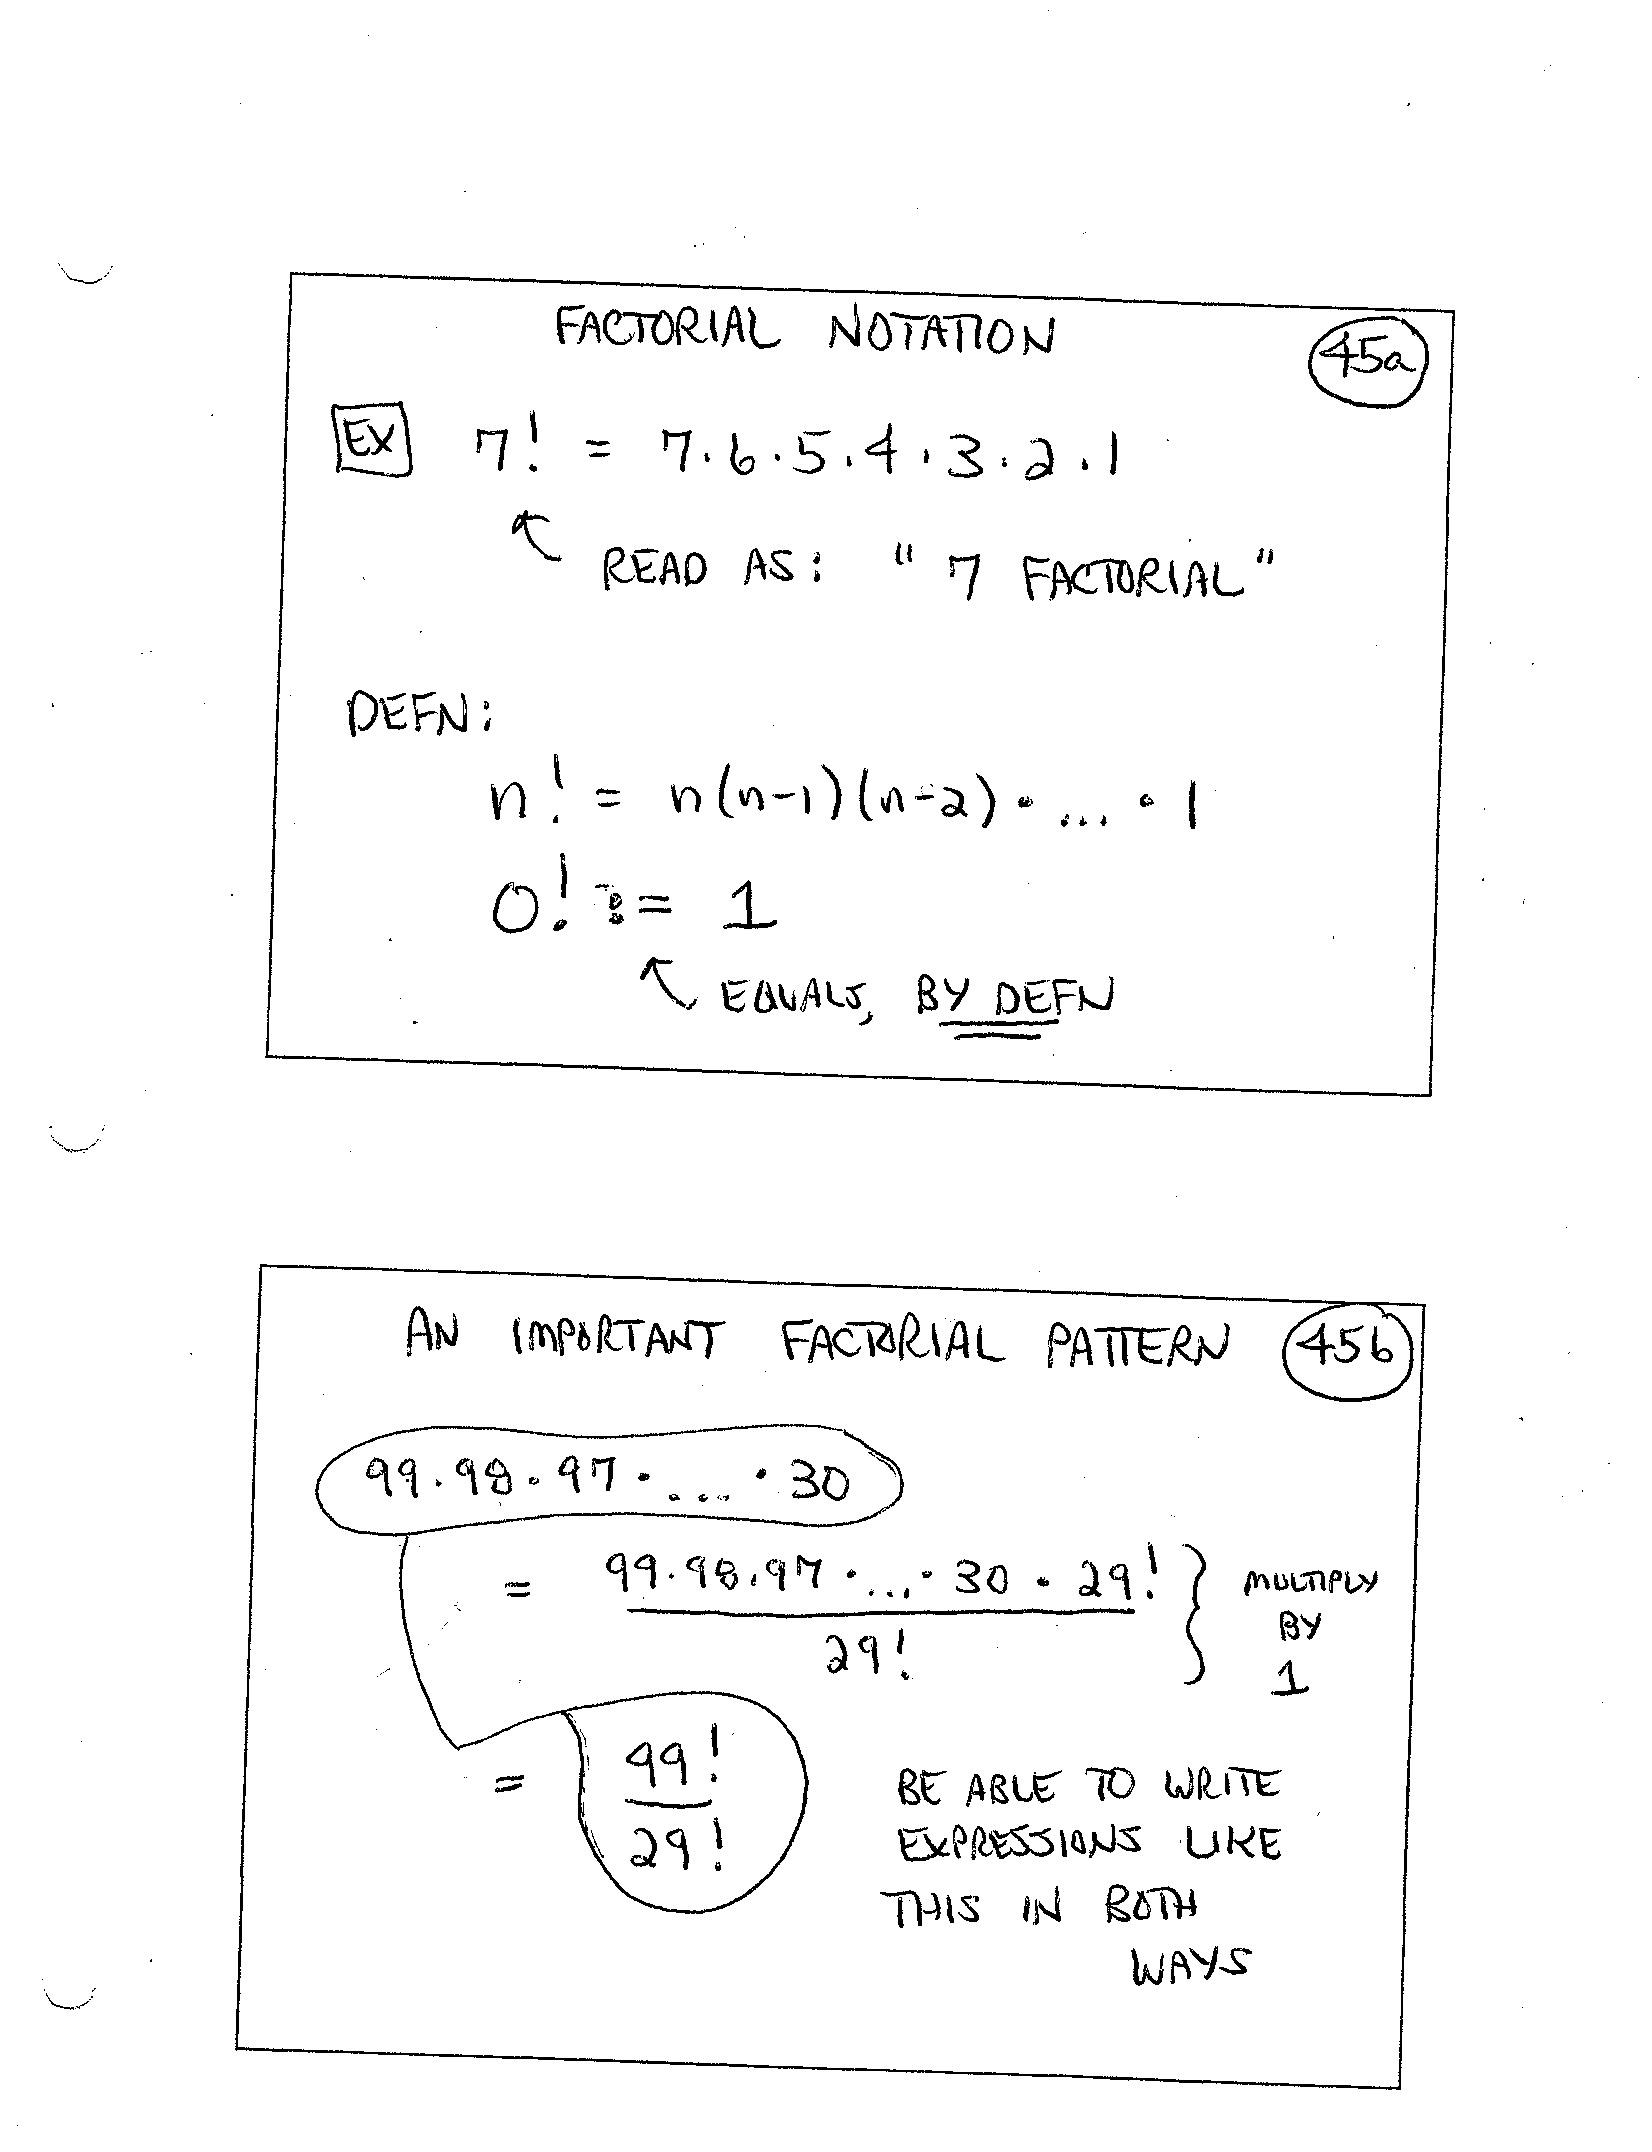 FACTORIAL NOTATION
45a
EX 7! = 7.6.5.4.3.2.1
READ AS: "7 FACTORIAL"
DEFN:
n! = n(n-1)(n-2) · ... · 1
0! := 1
EQUALS, BY DEFN
AN IMPORTANT FACTORIAL PATTERN
45b
99.98.97. ... . 30
= 99.98.97. ... . 30 . 29! } MULTIPLY
29! BY
1
= 99!
29!
BE ABLE TO WRITE
EXPRESSIONS LIKE
THIS IN BOTH
WAYS